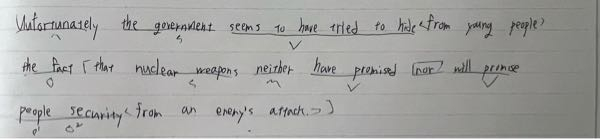 Unfortunately the government seems to have tried to hide <from young people>
the fact [that nuclear weapons neither have promised nor will promise
people security <from an enemy's attack.>]